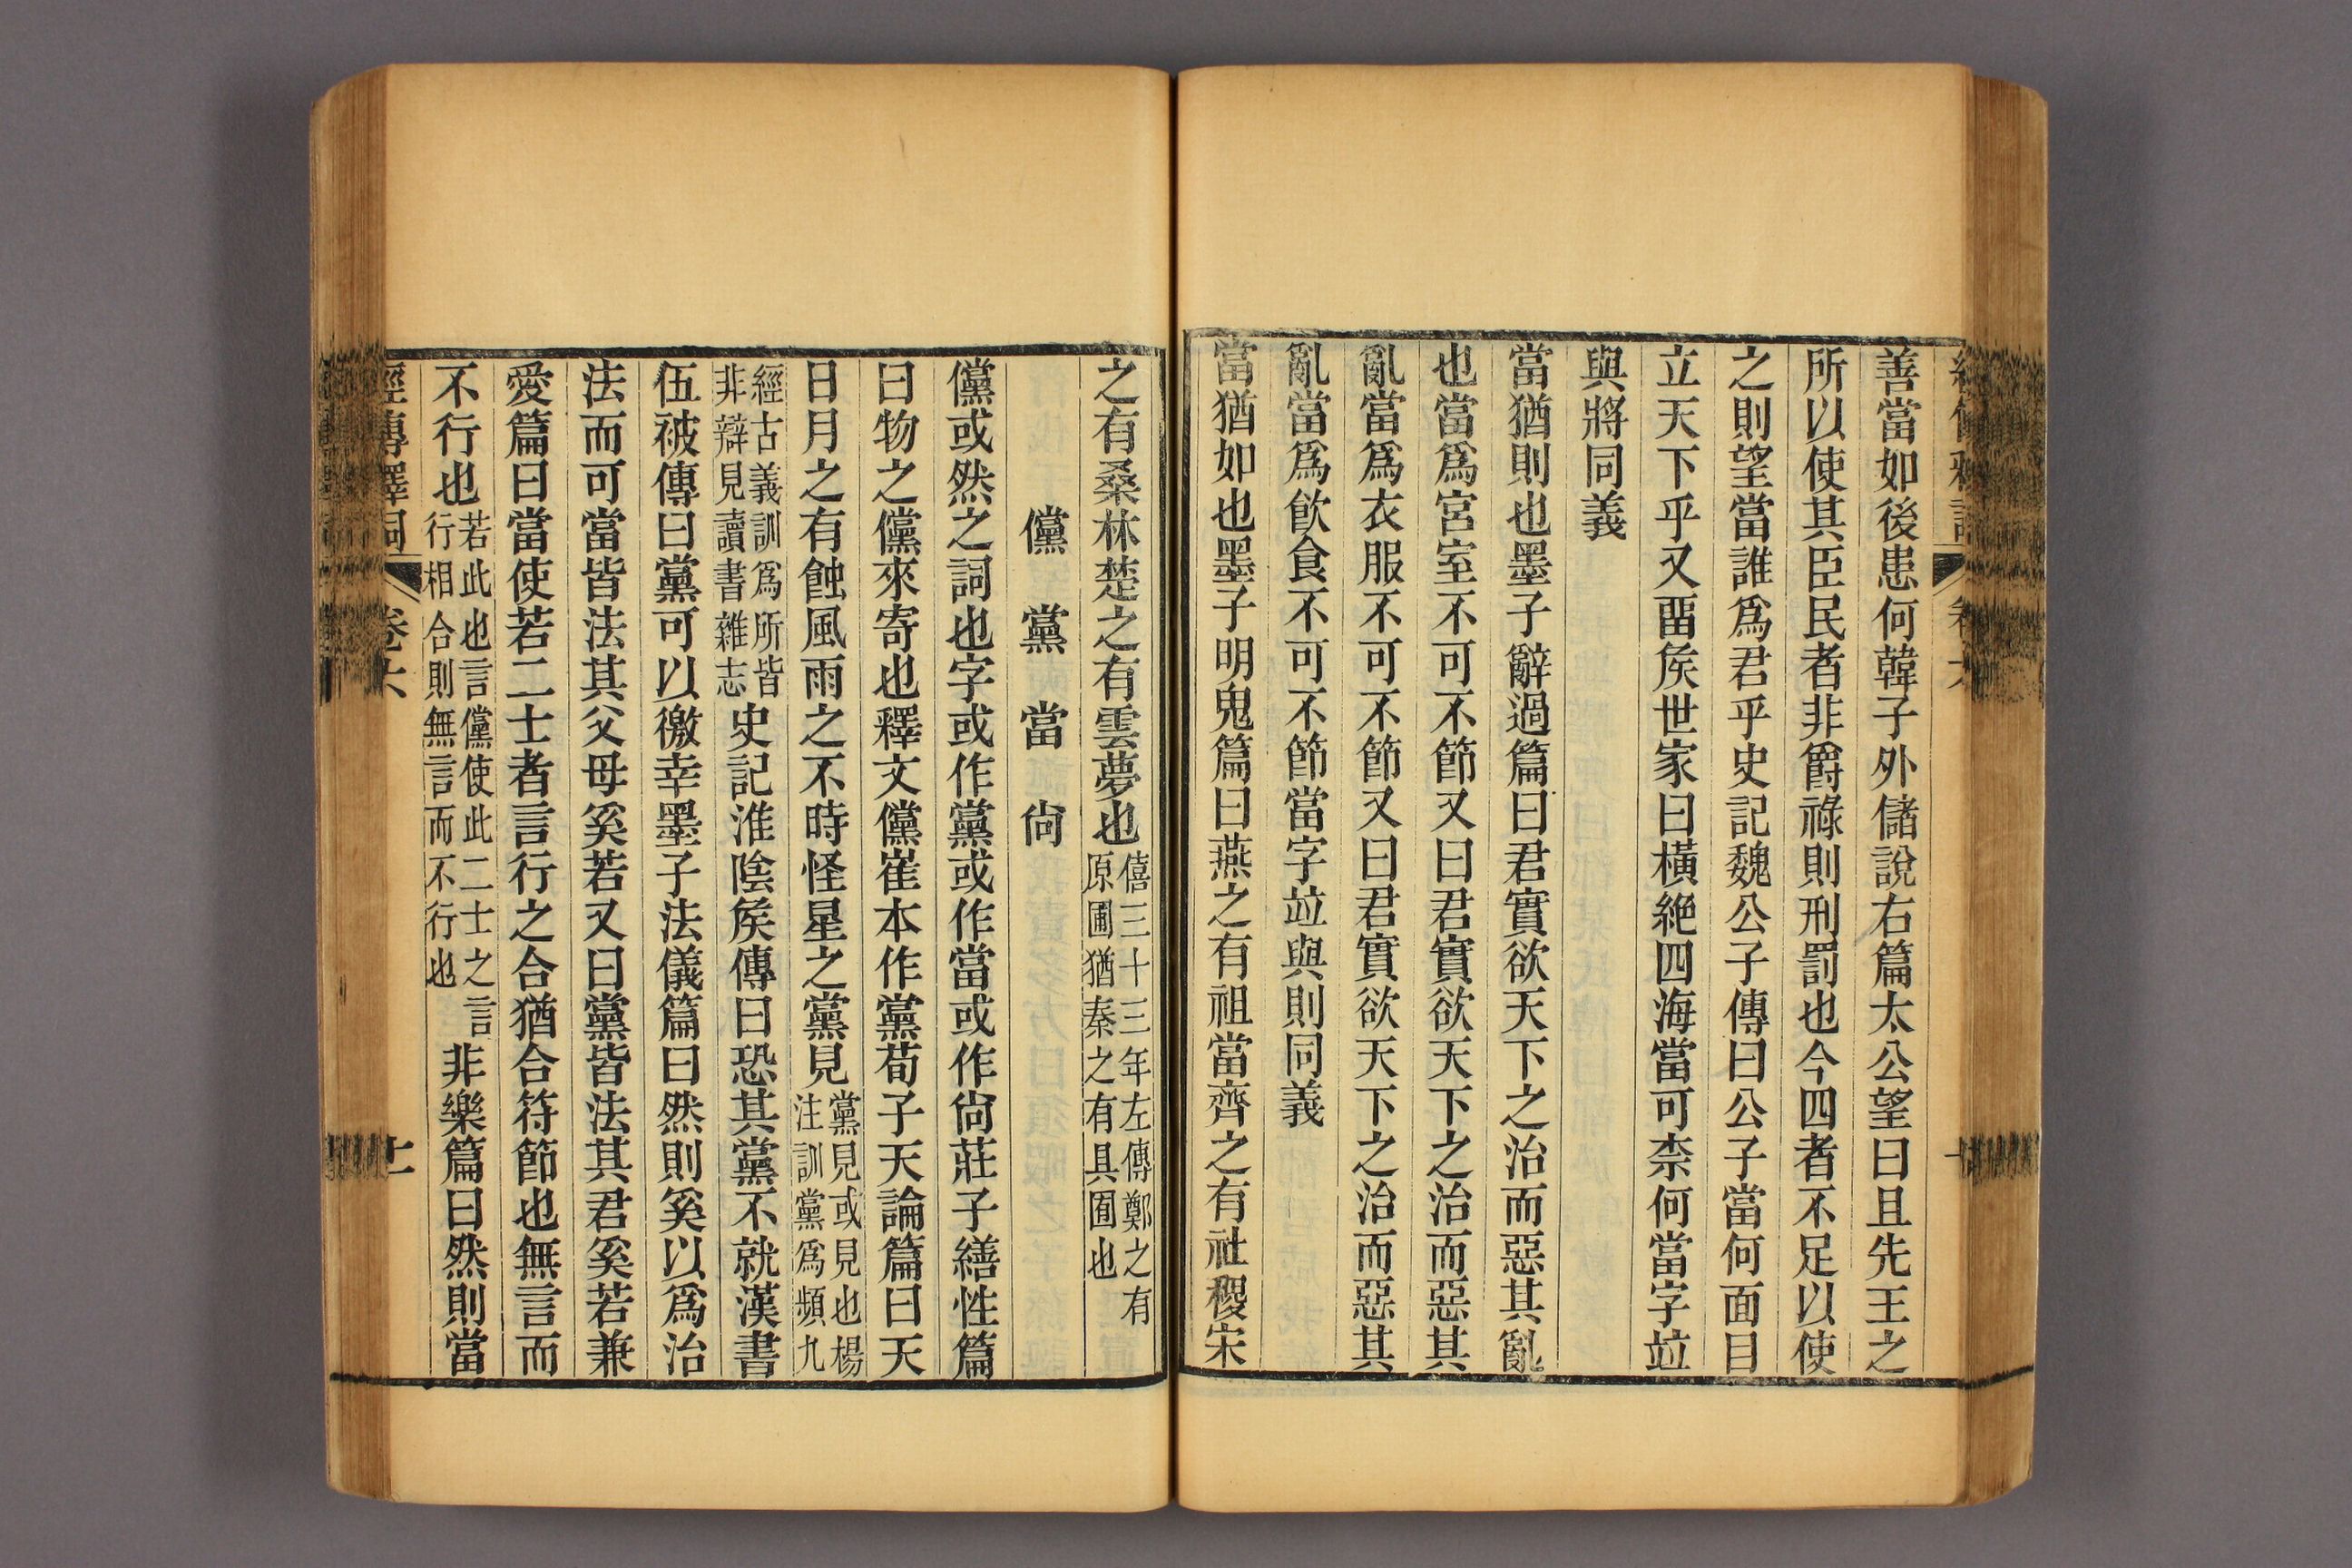 經傳釋詞 卷六 十
善當如後患何韓子外儲說右篇太公望曰且先王之
所以使其臣民者非爵祿則刑罰也今四者不足以使
之則望當誰爲君乎史記魏公子傳曰公子當何面目
立天下乎又畱矦世家曰橫絶四海當可柰何當字竝
與將同義
當猶則也墨子辭過篇曰君實欲天下之治而惡其亂
也當爲宮室不可不節又曰君實欲天下之治而惡其
亂當爲衣服不可不節又曰君實欲天下之治而惡其
亂當爲飮食不可不節當字竝與則同義
當猶如也墨子明鬼篇曰燕之有祖當齊之有社稷宋
之有桑林楚之有雲夢也僖三十三年左傳鄭之有原圃猶秦之有具囿也
儻 黨 當 尙
儻或然之詞也字或作黨或作當或作尙莊子繕性篇
曰物之儻來寄也釋文儻崔本作黨荀子天論篇曰天
日月之有蝕風雨之不時怪星之黨見黨見或見也楊注訓黨爲頻九
經古義訓爲所皆非辯見讀書雜志史記淮陰矦傳曰恐其黨不就漢書
伍被傳曰黨可以徼幸墨子法儀篇曰然則奚以爲治
法而可當皆法其父母奚若又曰黨皆法其君奚若兼
愛篇曰當使若二士者言行之合猶合符節也無言而
不行也若此也言儻使此二士之言行相合則無言而不行也非樂篇曰然則當
經傳釋詞 卷六 十一